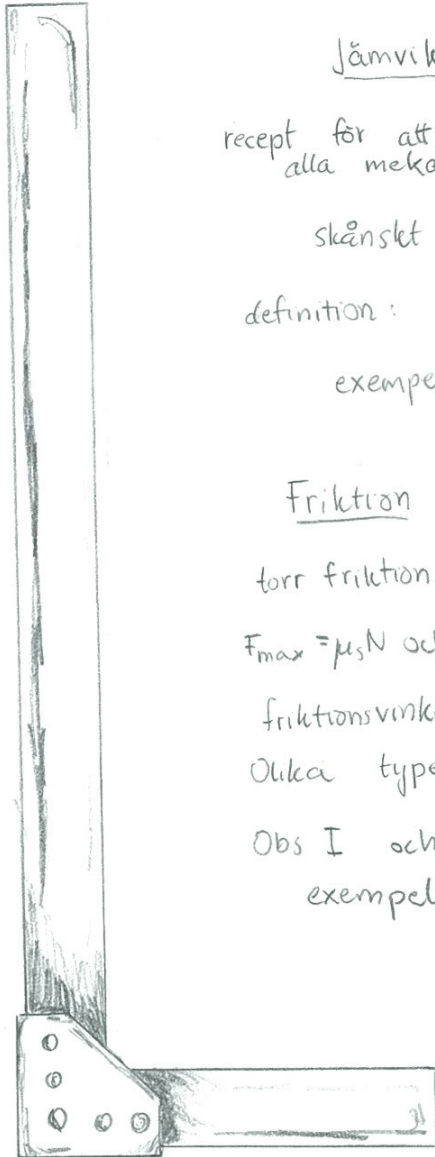 Jämvik
recept för att
alla meka
skånskt
definition:
exempe
Friktion
torr friktion
Fmax = μsN oc
friktionsvink
Olika type
Obs I och
exempel